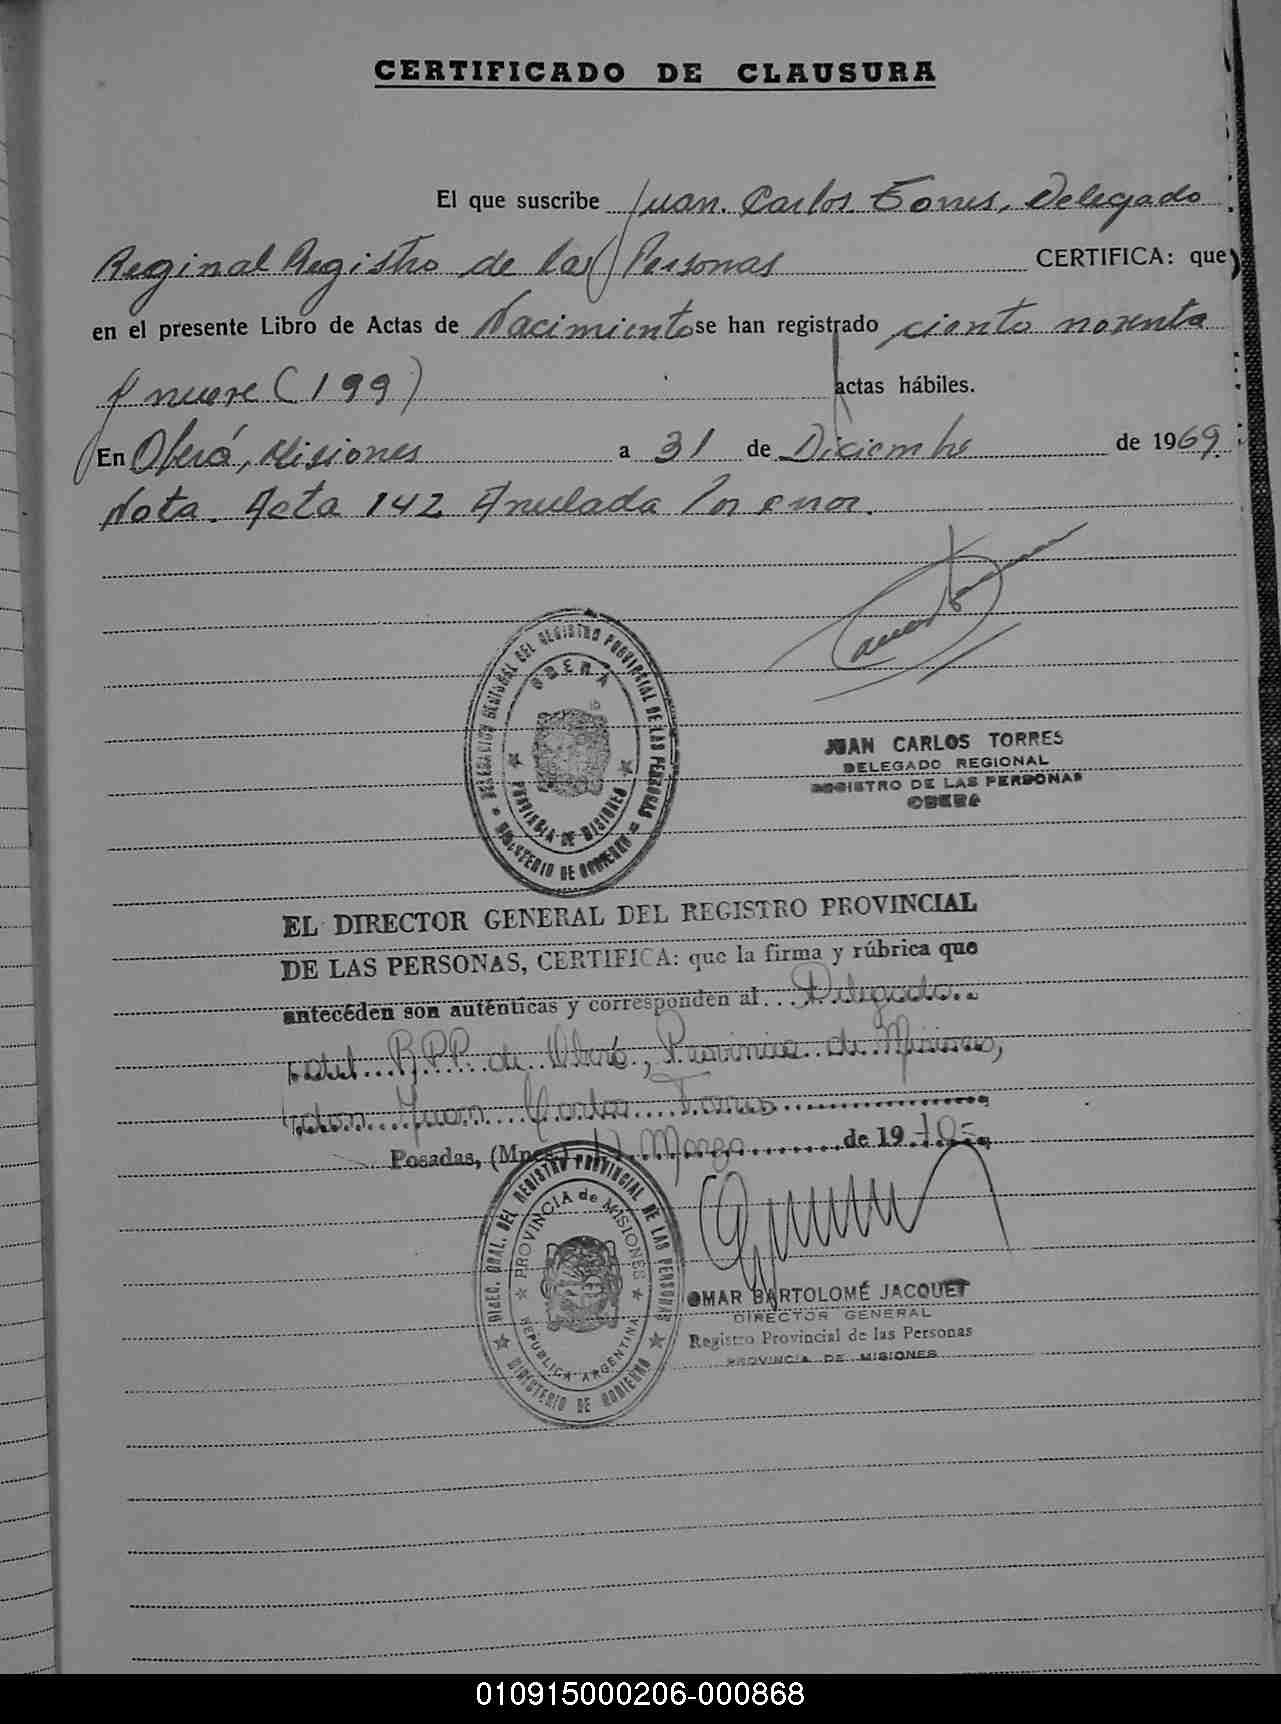 CERTIFICADO DE CLAUSURA
El que suscribe Juan Carlos Torres, Delegado
Reginal Registro de las Personas CERTIFICA: que
en el presente Libro de Actas de Nacimiento se han registrado ciento noventa
y nueve (199) actas hábiles.
En Oberá, Misiones a 31 de Diciembre de 1969.
Nota. Acta 142 Anulada por error.
DELEGACION REGIONAL DEL REGISTRO PROVINCIAL DE LAS PERSONAS
OBERA
PROVINCIA DE MISIONES
MINISTERIO DE GOBIERNO
JUAN CARLOS TORRES
DELEGADO REGIONAL
REGISTRO DE LAS PERSONAS
OBERA
EL DIRECTOR GENERAL DEL REGISTRO PROVINCIAL
DE LAS PERSONAS, CERTIFICA: que la firma y rúbrica que
anteceden son auténticas y corresponden al Delegado
del R.P.P. de Oberá, Provincia de Misiones,
don Juan Carlos Torres
Posadas, (Mnes.) Marzo de 1970
DIREC. GRAL. DEL REGISTRO PROVINCIAL DE LAS PERSONAS
PROVINCIA de MISIONES
REPUBLICA ARGENTINA
MINISTERIO DE GOBIERNO
OMAR BARTOLOMÉ JACQUET
DIRECTOR GENERAL
Registro Provincial de las Personas
PROVINCIA DE MISIONES
010915000206-000868